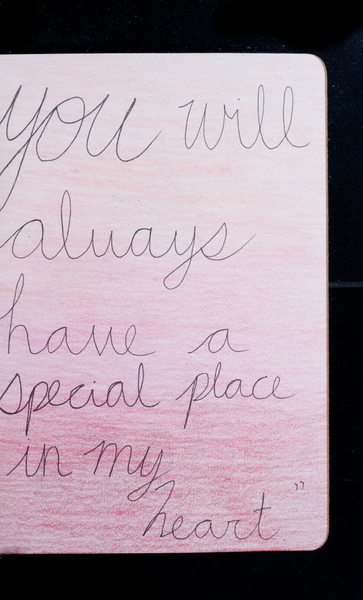 you will
always
have a
special place
in my
heart."